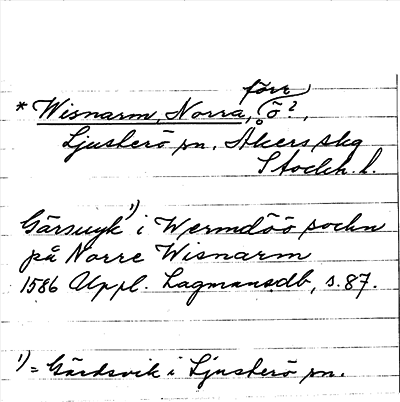 förr
* Wisnarm, Norra, ö?,
Ljusterö sn, Åkers skg
Stockh. l.
Gärsuyk 1) i Wermdöö sockn
på Norre Wisnarm
1586 Uppl. Lagmansdb, s. 87.
1) = Gärdsvik i Ljusterö sn.